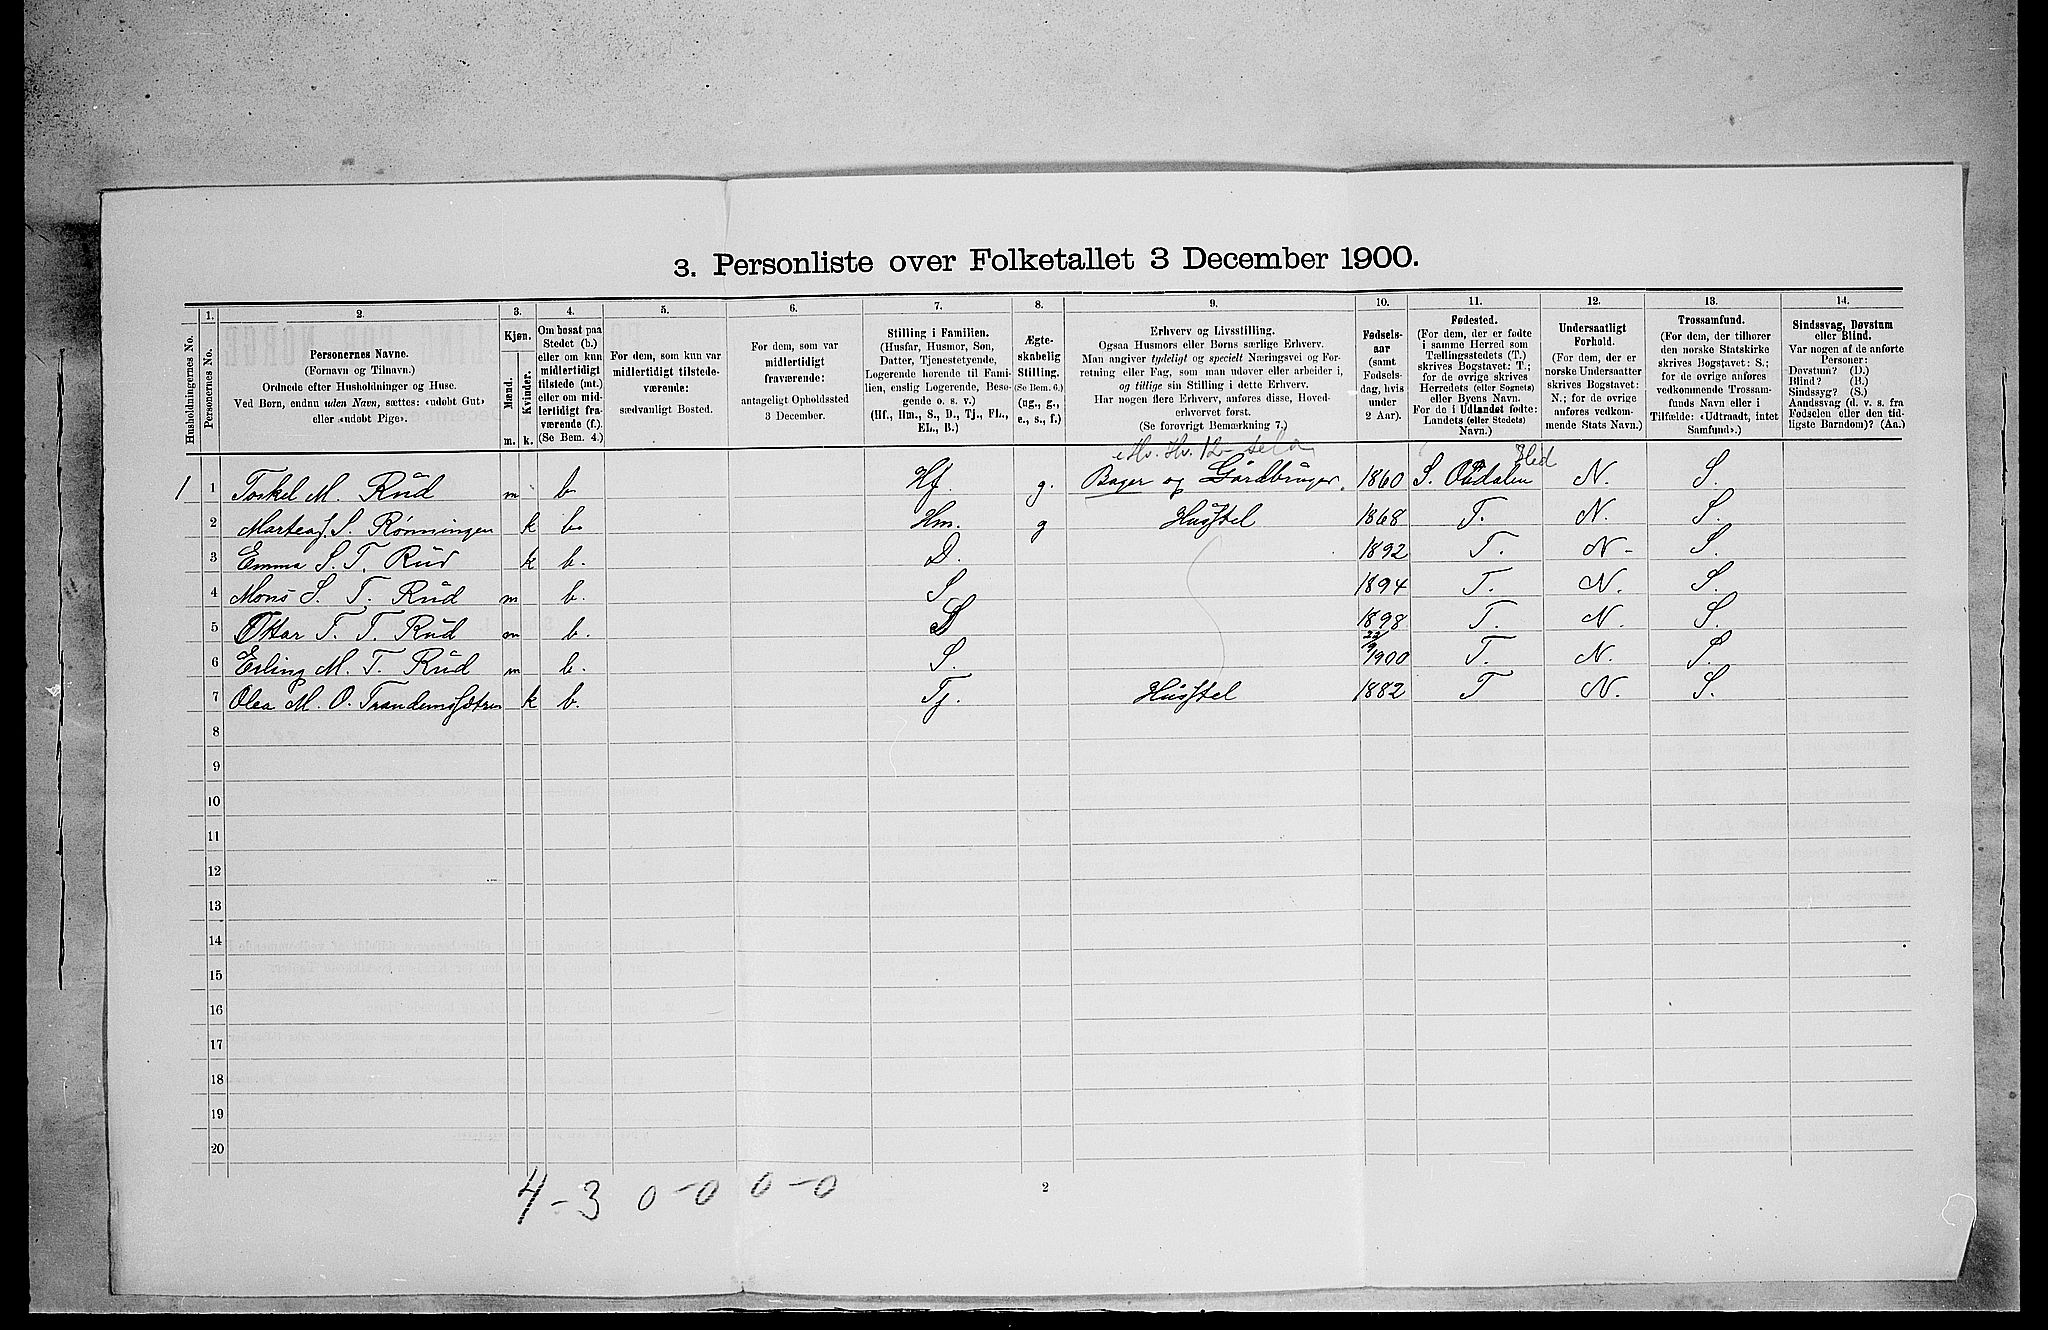 3. Personliste over Folketallet 3 December 1900.
1. 2. 3. 4. 5. 6. 7. 8. 9. 10. 11. 12. 13. 14.
Husholdningernes No.
Personernes No.
Personernes Navne.
(Fornavn og Tilnavn.)
Ordnede efter Husholdninger og Huse.
Ved Børn, endnu uden Navn, sættes: «udøbt Gut»
eller «udøbt Pige».
Kjøn.
Mænd.
Kvinder.
m. k.
Om bosat paa
Stedet (b.)
eller om kun
midlertidigt
tilstede (mt.)
eller om mid-
lertidigt fra-
værende (f.)
(Se Bem. 4.)
For dem, som kun var
midlertidigt tilstede-
værende:
sædvanligt Bosted.
For dem, som var
midlertidigt
fraværende:
antageligt Opholdssted
3 December.
Stilling i Familien.
(Husfar, Husmor, Søn,
Datter, Tjenestetyende,
Logerende hørende til Fami-
lien, enslig Logerende, Besø-
gende o. s. v.)
(Hf., Hm., S., D., Tj., FL.,
EL., B.)
Ægte-
skabelig
Stilling.
(Se Bem. 6.)
(ug., g.,
e., s., f.)
Erhverv og Livsstilling.
Ogsaa Husmors eller Børns særlige Erhverv.
Man angiver tydeligt og specielt Næringsvei og For-
retning eller Fag, som man udøver eller arbeider i,
og tillige sin Stilling i dette Erhverv.
Har nogen flere Erhverv, anføres disse, Hoved-
erhvervet først.
(Se forøvrigt Bemærkning 7.)
Fødsels-
aar
(samt
Fødsels-
dag, hvis
under
2 Aar).
Fødested.
(For dem, der er fødte
i samme Herred som
Tællingsstedets (T.)
skrives Bogstavet: T.;
for de øvrige skrives
Herredets (eller Sognets)
eller Byens Navn.
For de i Udlandet fødte:
Landets (eller Stedets)
Navn.)
Undersaatligt
Forhold.
(For dem, der er
norske Undersaatter
skrives Bogstavet:
N.; for de øvrige
anføres vedkom-
mende Stats Navn.)
Trossamfund.
(For dem, der tilhører
den norske Statskirke
skrives Bogstavet: S.;
for de øvrige anføres
vedkommende Trossam-
funds Navn eller i
Tilfælde: «Udtraadt, intet
Samfund».)
Sindssvag, Døvstum
eller Blind.
Var nogen af de anførte
Personer:
Døvstum? (D.)
Blind? (B.)
Sindssyg? (S.)
Aandssvag (d. v. s. fra
Fødselen eller den tid-
ligste Barndom)? (Aa.)
Hed
1 1 Torkel M. Rud m b. Hf. g. Bager og Gårdbruger. 1860 S. Oudalen N. S.
2 Martea J. S. Rønningen k b. Hm. g Husstel 1868 T. N. S.
3 Emma S. T. Rud k b. D. 1892 T. N- S.
4 Mons S. T. Rud m b. S. 1894 T. N. S.
5 Ottar T. T. Rud m b. S 1898 T. N. S.
6 Erling M. T. Rud m b. S. 22/9 1900 T. N. S.
7 Olea M. O. Trandemsætren k b. Tj. Husstel 1882 T N. S.
8
9
10
11
12
13
14
15
16
17
18
19
20
4-3 0-0 0-0
2